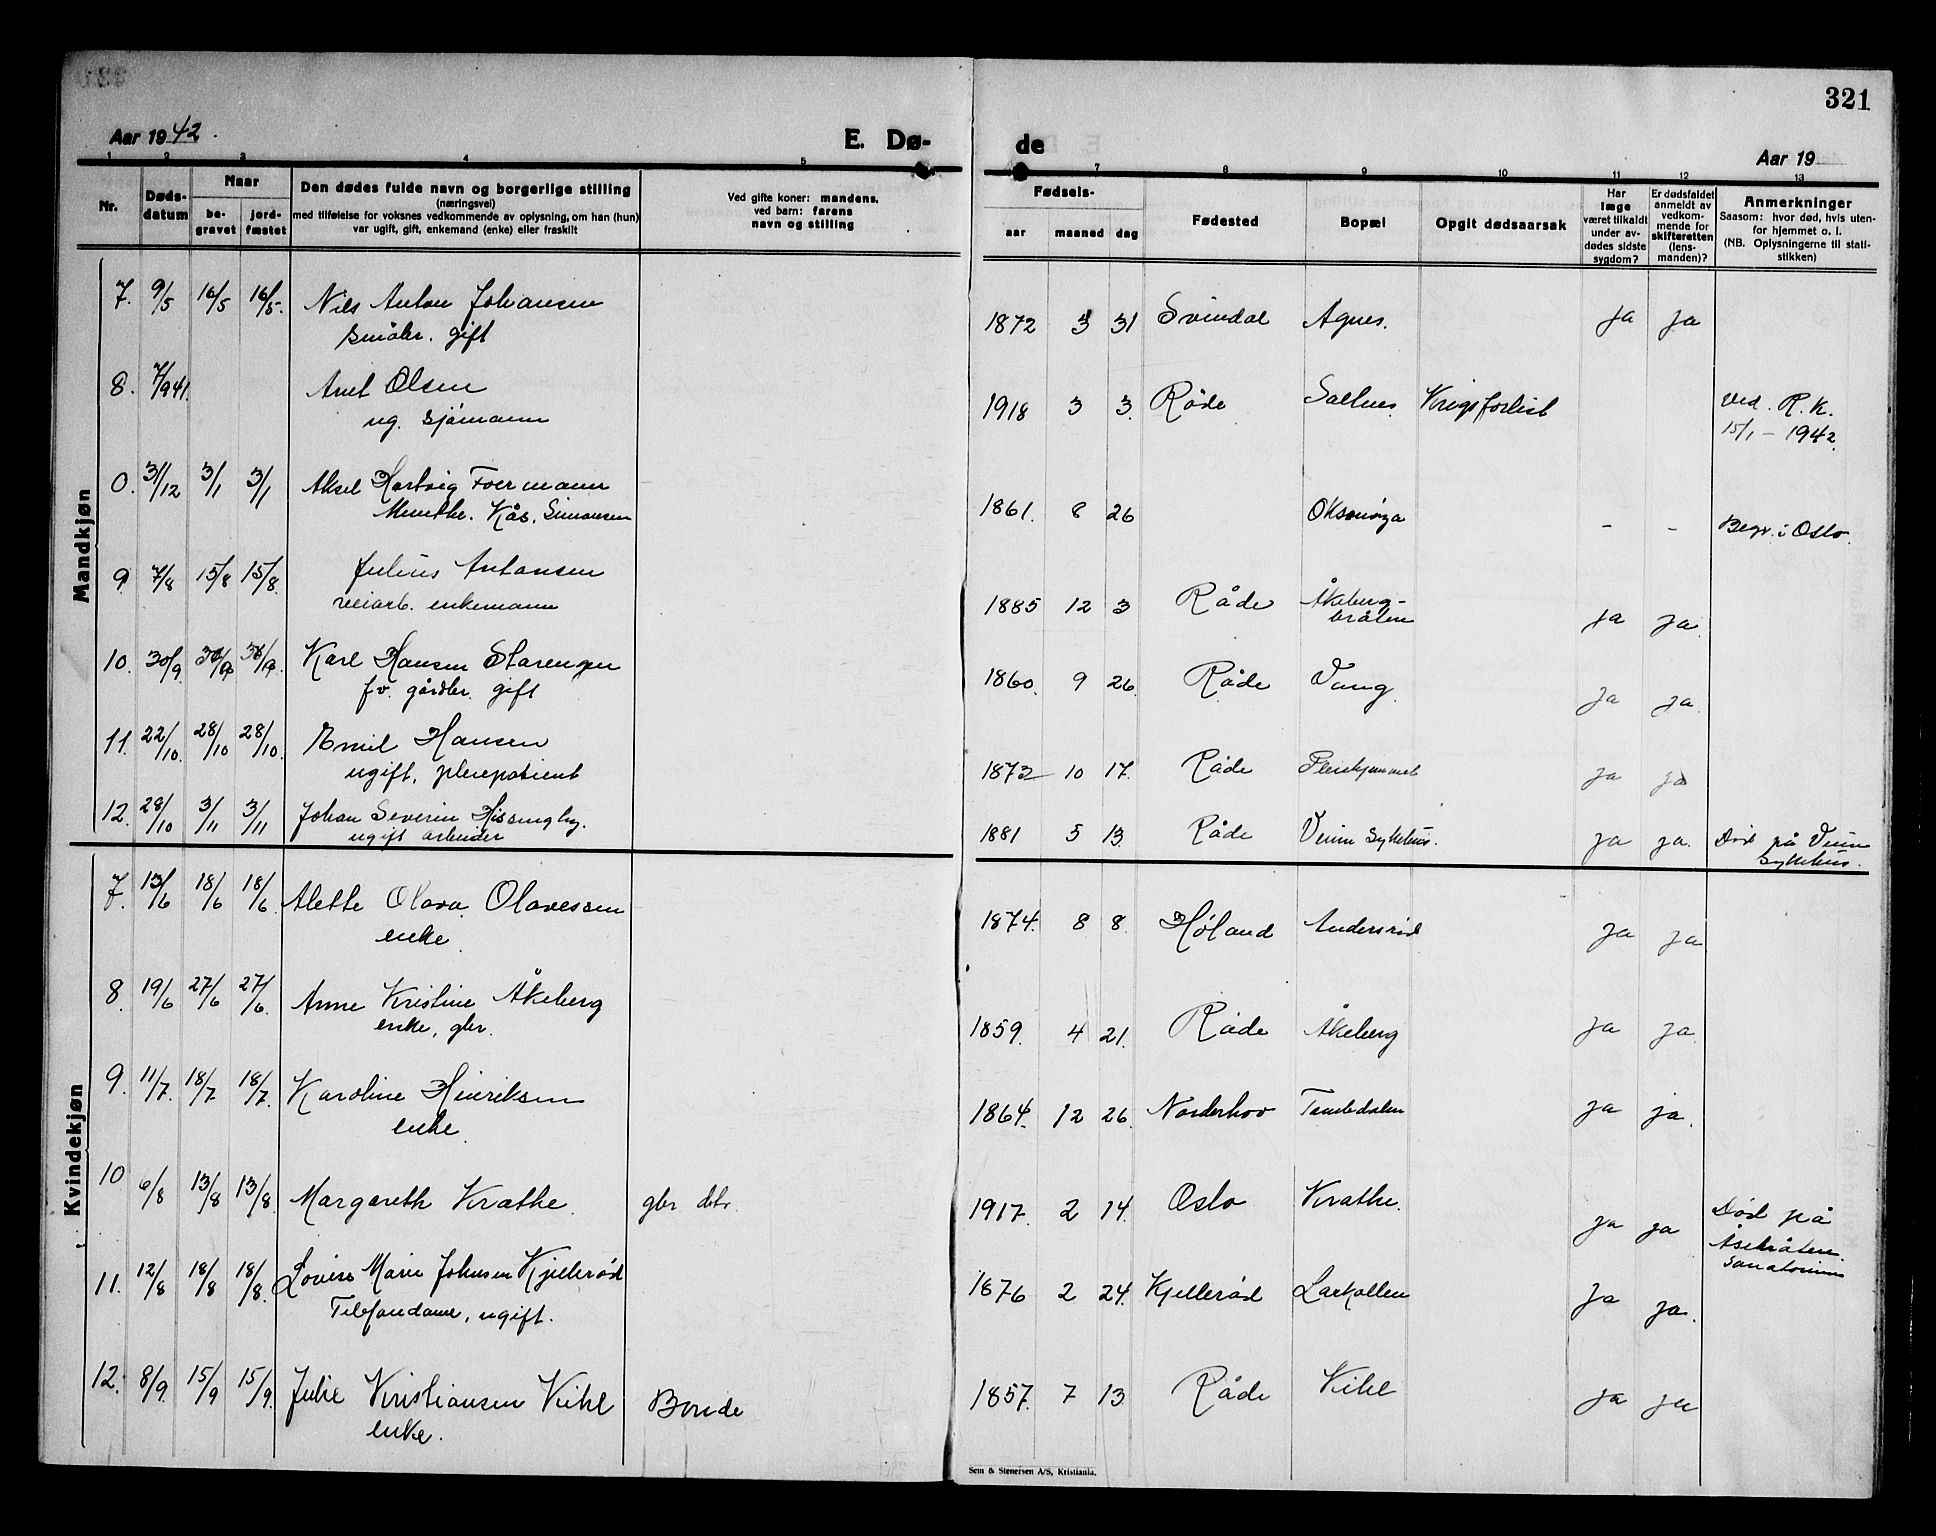 321
Aar 1942.
E. Dø-
de
Aar 19
1 2 3 4 5 7 8 9 10 11 12 13
Nr.
Døds-
datum
Naar
be-
gravet
jord-
fæstet
Den dødes fulde navn og borgerlige stilling
(næringsvei)
med tilføielse for voksnes vedkommende av oplysning, om han (hun)
var ugift, gift, enkemand (enke) eller fraskilt
Ved gifte koner: mandens,
ved barn: farens
navn og stilling
Fødsels-
aar maaned dag
Fødested
Bopæl
Opgit dødsaarsak
Har
læge
været tilkaldt
under av-
dødes sidste
sygdom?
Er dødsfaldet
anmeldt av
vedkom-
mende for
skifteretten
(lens-
manden)?
Anmerkninger
Saasom: hvor død, hvis uten-
for hjemmet o. l.
(NB. Oplysningerne til stati-
stikken)
Mandkjøn
7. 9/5 16/5 16/5. Nils Anton Johansen 1872 3 31 Svindal Agnes. ja ja
småbr. gift
8. 7/9 41. Arnt Olsen 1918 3 3. Råde Saltnes. Krigsforlist Ved. R. K.
ug. sjømann 15/1 - 1942.
0. 31/12 3/1 3/1 Aksel Hartvig 1861. 8 26 Oksenøya - - Begr. i Oslo.
Munthe. Kås. Simonsen
9 7/8 15/8 15/8. Julius Antonsen 1885 12 3 Råde Åkeberg-
bråten ja ja.
veiarb. enkemann
10. 30/9. 1860. 9 26. Råde Vang ja ja.
Karl Hansen Starengen
fv. gårdbr. gift
11. 22/10. 28/10 28/10. Emil Hansen 1873 10 17. Råde Pleiehjemmet ja ja
ugift, pleiepatient
12. 28/10 3/11 3/11 Johan Severin Hissingby. 1881 5 13. Råde Veum Sykehus. ja ja. Død på Veum
Sykehus.
ugift arbeider
Kvindekjøn
7. 13/6 18/6 18/6. Alette Olava Olavessen 1874. 8 8. Høland Andersrød ja ja
enke.
8. 19/6 27/6 27/6. Anne Kristine Åkeberg 1859. 4 21. Råde Åkeberg ja ja
enke, gbr.
9. 11/7. 18/7 18/7. Karoline Henriksen 1864. 12 26. Norderhov Tombdalen ja ja.
enke.
10 6/8 13/8 13/8. Margareth Krathe. gbr dtr. 1917. 2 14. Oslo Krathe. ja ja Død på
Åsebråten
Sanatorium
11. 12/8 18/8 18/8. Lovise Marie Johnsen Kjellerød 1876 2 24. Kjellerød Larkollen ja ja.
Telefondame, ugift.
12. 8/9. 15/9 15/9. Julie Kristiansen Kihl Bonde 1857. 7 13. Råde Kihl ja ja
enke.
Sem & Stenersen A/S, Kristiania.